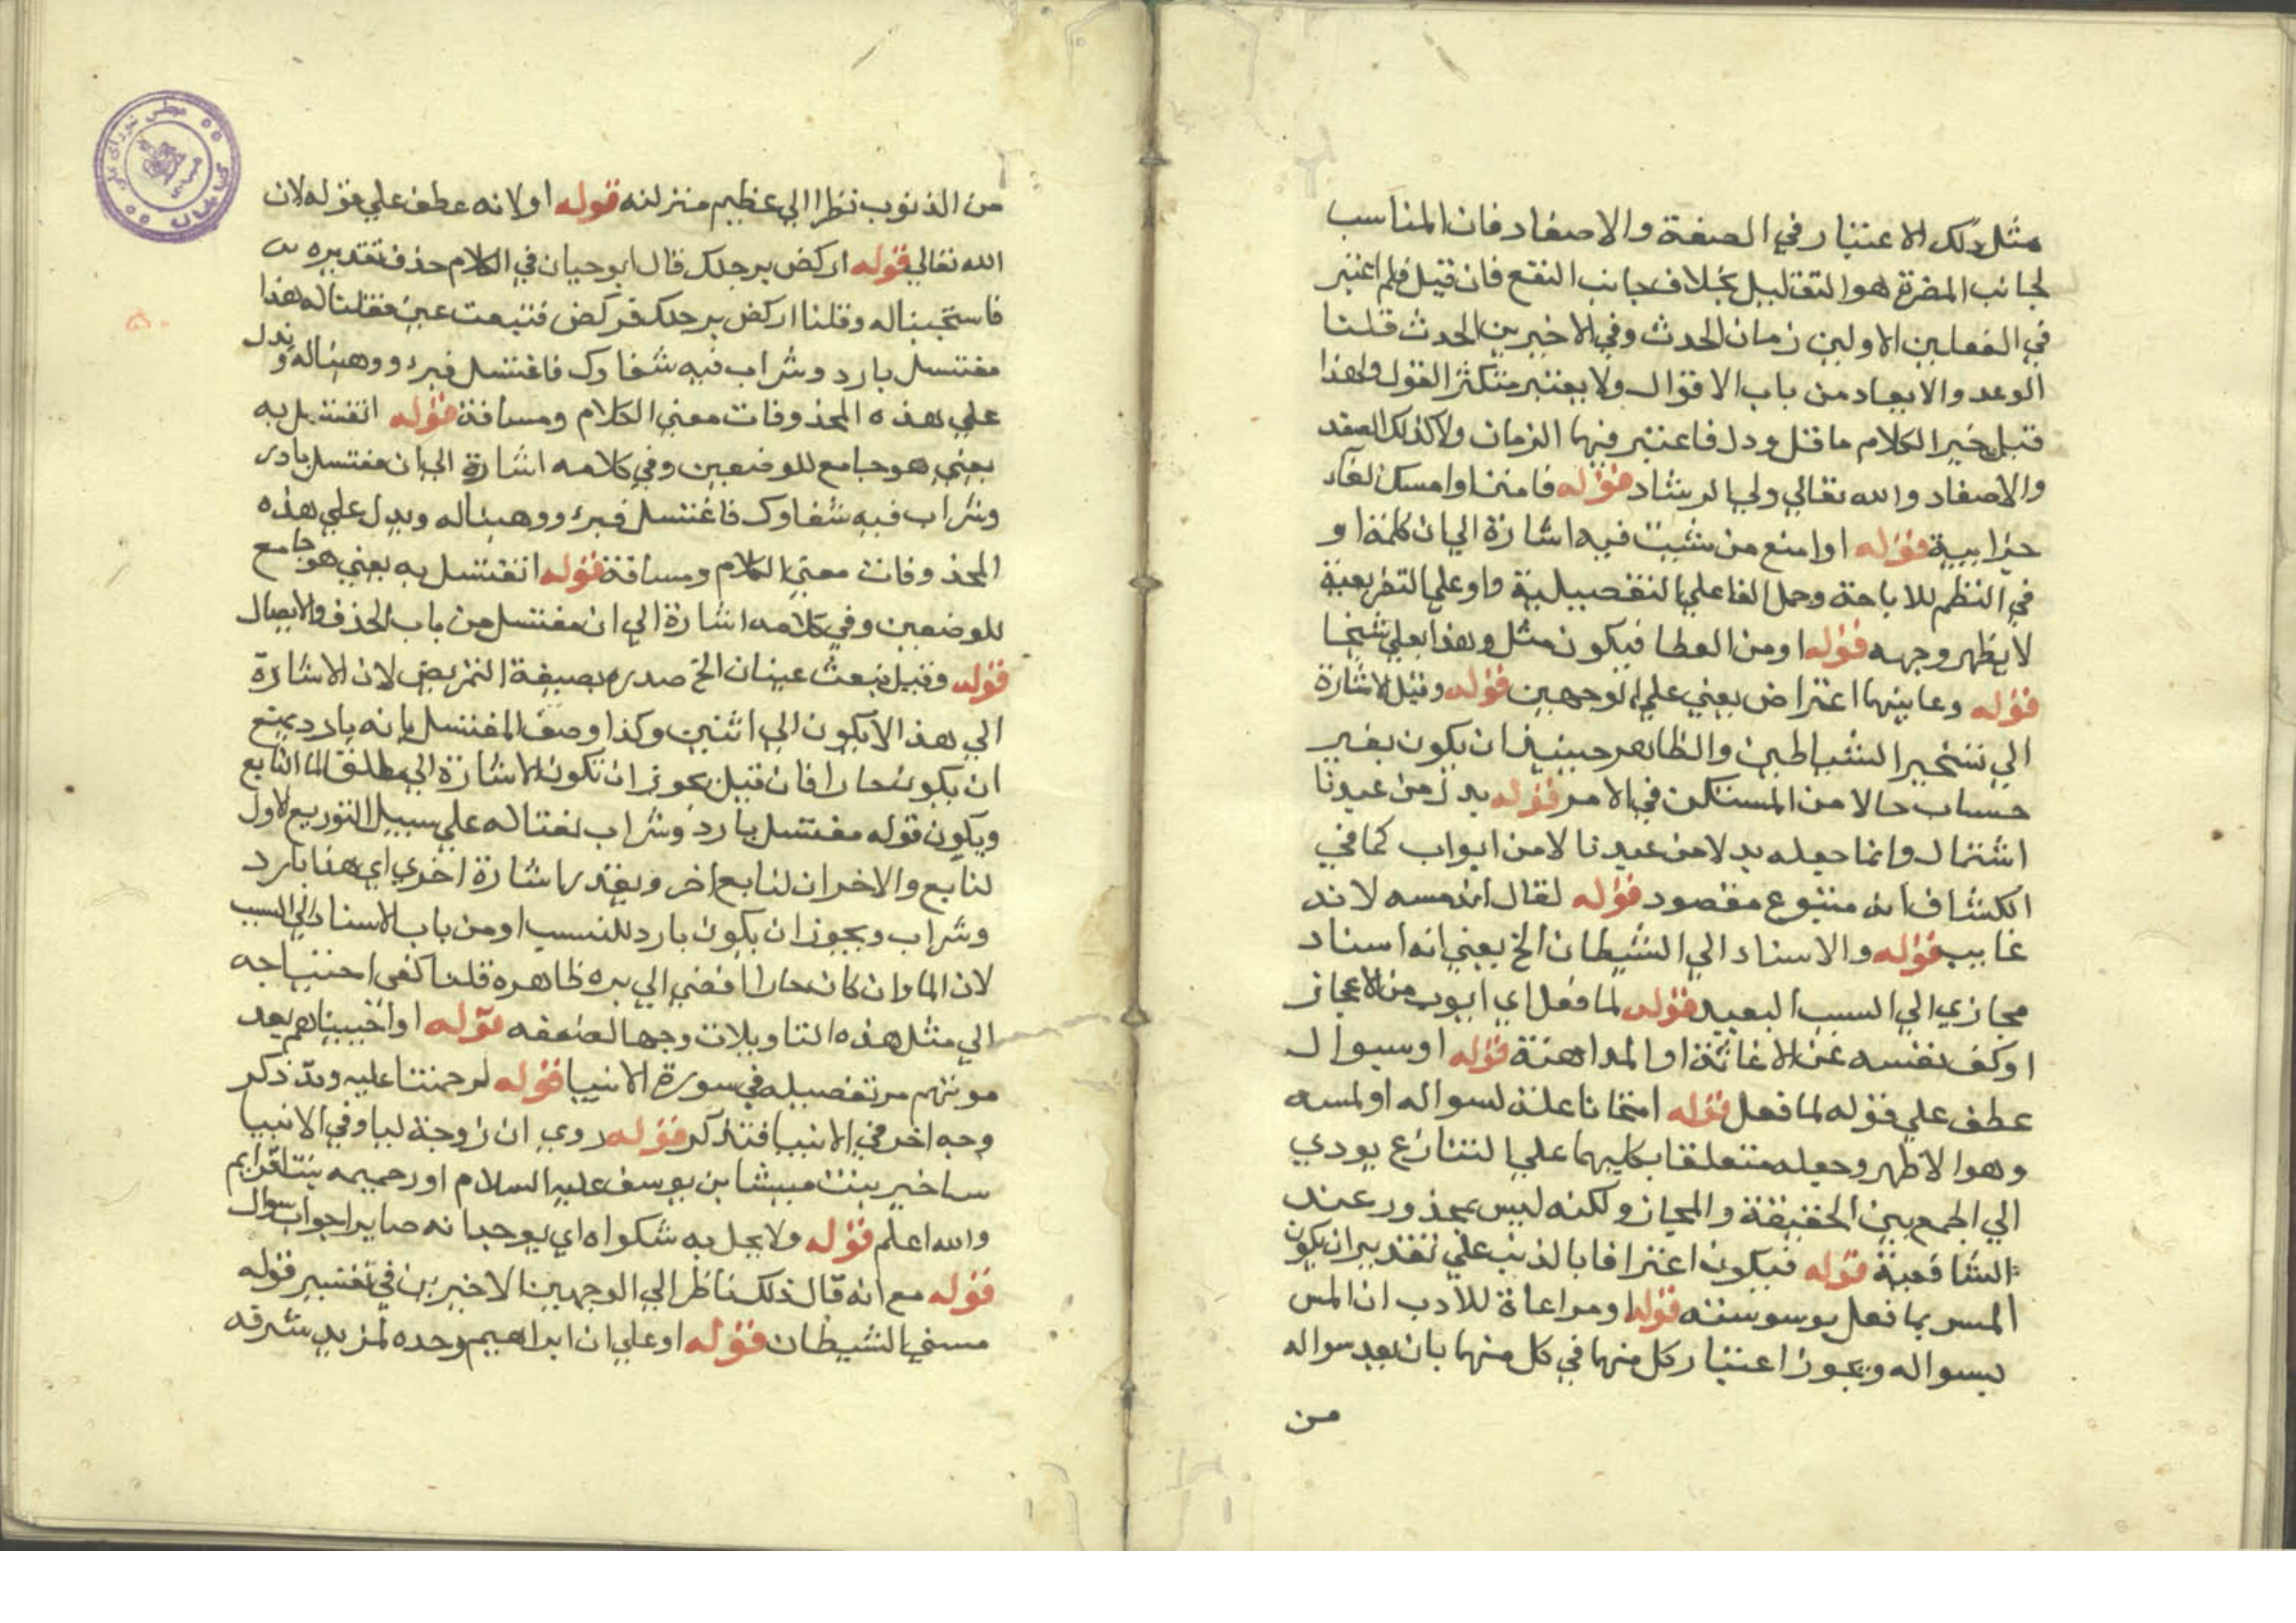 مثل ذلك الاعتبار في الصفة والاصفاد فان المناسب
لجانب المضرة هو التقليل بخلاف جانب النفع فان قيل فلم اعتبر
في الفعلين الاولين زمان الحدث وفي الاخيرين الحدث قلنا
الوعد والايعاد من باب الاقوال ولا يعتبر متكثر القول ولهذا
قيل خير الكلام ما قل ودل فاعتبر فيها الزمان ولا كذلك الصفد
والاصفاد والله تعالي ولي الرشاد قوله فامنن او امسك الفاء
جزايية قوله او امنع من شيت فيه اشارة الي ان كلمة او
في النظم للاباحة وحمل الفا علي التفصيلية واو علي التفريعية
لا يظهر وجهه قوله او من العطا فيكون مثل وهذا بعلي شيخا
قوله وما بينهما اعتراض يعني علي الوجهين قوله وقيل الاشارة
الي تسخير الشياطين والظاهر حينيذ ان يكون بغير
حساب حالا من المستكن في الامر قوله بدل من عبدنا
اشتمال وانما جعله بدلا من عبدنا لا من ايوب كما في
الكشاف انه متبوع مقصود قوله لقال انه مسه لانه
غايب قوله والاسناد الي الشيطان الخ يعني انه اسناد
مجازي الي السبب البعيد قوله لما فعل اي ايوب من الاعجاز
او كف نفسه عن الاغاثة او المداهنة قوله او سوال
عطف علي قوله لما فعل قوله امتحانا علة لسواله او لمسه
وهو الاظهر وجعله متعلقا بكليهما علي التنازع يودي
الي الجمع بين الحقيقة والمجاز ولكنه ليس بمحذور عند
الشافعية قوله فيكون اعترافا بالذنب علي تقدير ان يكون
المس بما فعل بوسوسته قوله او مراعاة للادب ان المس
بسواله ويجوز اعتبار كل منهما في كل منهما بان بعد سواله
من
من الذنوب نظرا الي عظيم منزلته قوله او لانه عطف علي قوله لان
الله تعالي قوله اركض برجلك قال ابو حيان في الكلام حذف تقديره
فاستجبنا له وقلنا اركض برجلك فركض فنبعت عين فقلنا له هذا
مغتسل بارد وشراب فيه شفاوك فاغتسل فبرء ووهبنا له ويدل
علي هذه المحذوفات معني الكلام ومساقة قوله اتغتسل به
يعني هو جامع للوضعين وفي كلامه اشارة الي ان مغتسل بارد
وشراب فيه شفاوك فاغتسل فبرء ووهبنا له ويدل علي هذه
المحذوفات معني الكلام ومساقة قوله اتغتسل به يعني هو جامع
للوضعين وفي كلامه اشارة الي ان مغتسل من باب الحذف والايصال
قوله وقيل نبعث عينان الخ صدره بصيغة التمريض لان الاشارة
الي هذا لا يكون الي اثنين وكذا وصف المغتسل بانه بارد يمنع
ان يكون حارا فان قيل يجوز ان تكون الاشارة الي مطلق الما النابع
ويكون قوله مغتسل بارد وشراب نعتا له علي سبيل التوزيع الاول
لنابع والاخران لنابع اخر ويقدر اشارة اخري اي هذا بارد
وشراب ويجوز ان يكون بارد للنسب او من باب الاسناد الي السبب
لان الما وان كان حارا افضي الي برد ظاهره قلنا كفي احتياجه
الي مثل هذه التاويلات وجها لضعفه قوله او احييناهم بعد
موتهم مر تفصيله في سورة الانبيا قوله لرحمتنا عليه وقد ذكر
وجه اخر في الانبيا فتذكر قوله روي ان زوجة ليا وفي الانبيا
ساخير بنت ميشا بن يوسف عليه السلام او رحيمه بنت افرايم
والله اعلم قوله ولا يخل به شكواه اي يوجدانه صابرا جواب سوال
قوله مع انه قال ذلك ناظر الي الوجهين الاخيرين في تفسير قوله
مسني الشيطان قوله او علي ان ابراهيم وحده لمزيد شرفه